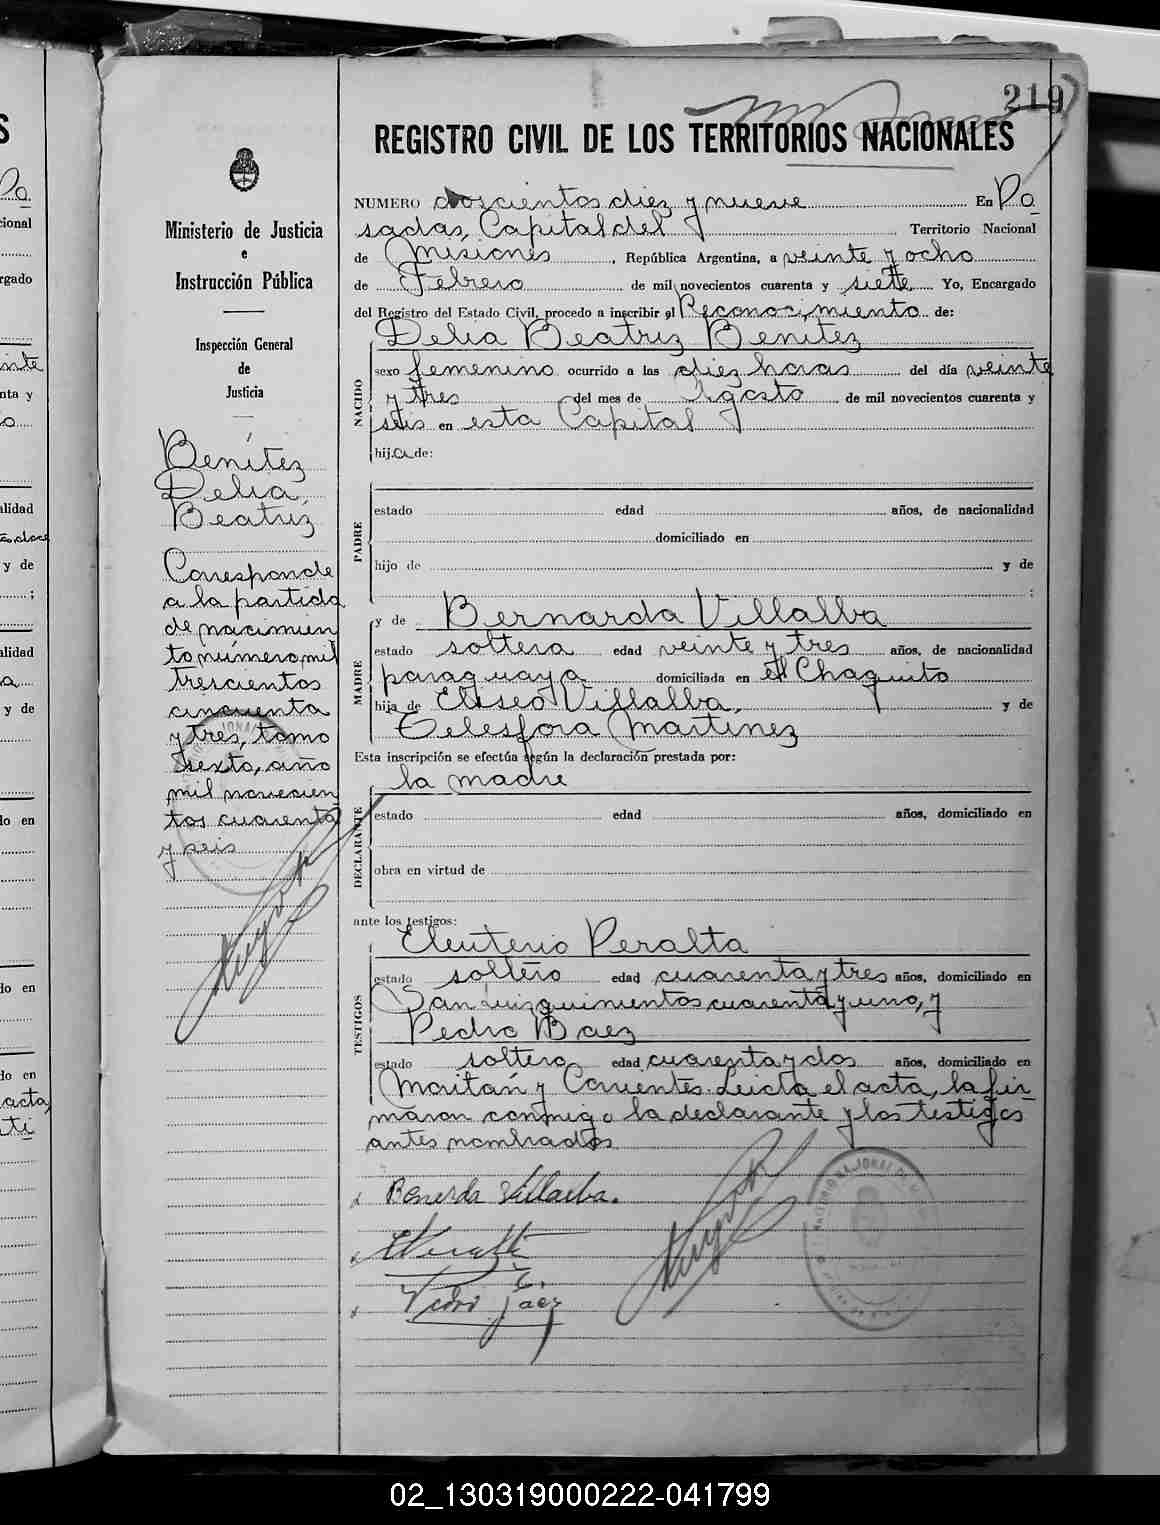 219
REGISTRO CIVIL DE LOS TERRITORIOS NACIONALES
Ministerio de Justicia
e
Instrucción Pública
Inspección General
de
Justicia
Benítez
Delia,
Beatriz
Corresponde
a la partida
de nacimien
to número mil
trescientos
cincuenta
y tres, tomo
sexto, año
mil novecien
tos cuarenta
y seis
NUMERO doscientos diez y nueve En Po
sadas, Capital del Territorio Nacional
de Misiones, República Argentina, a veinte y ocho
de Febrero de mil novecientos cuarenta y siete Yo, Encargado
del Registro del Estado Civil, procedo a inscribir el Reconocimiento de:
Delia Beatriz Benítez
NACIDO
sexo femenino ocurrido a las diez horas del día veinte
y tres del mes de Agosto de mil novecientos cuarenta y
seis en esta Capital
hija de:
PADRE
estado edad años, de nacionalidad
domiciliado en
hijo de y de
;
MADRE
y de Bernarda Villalba
estado soltera edad veinte y tres años, de nacionalidad
paraguaya domiciliada en el Chaquito
hija de Eliseo Villalba, y de
Telesfora Martinez
Esta inscripción se efectúa según la declaración prestada por:
la madre
DECLARANTE
estado edad años, domiciliado en
obra en virtud de
ante los testigos:
TESTIGOS
Eleuterio Peralta
estado soltero edad cuarenta y tres años, domiciliado en
San Luis quinientos cuarenta y uno, y
Pedro Baez
estado soltero edad cuarenta y dos años, domiciliado en
Maitán y Corrientes. Leida el acta, la fir
maron conmigo la declarante y los testigos
antes nombrados
Benerda Villalba.
EPeralta
Pedro Báez
02_130319000222-041799